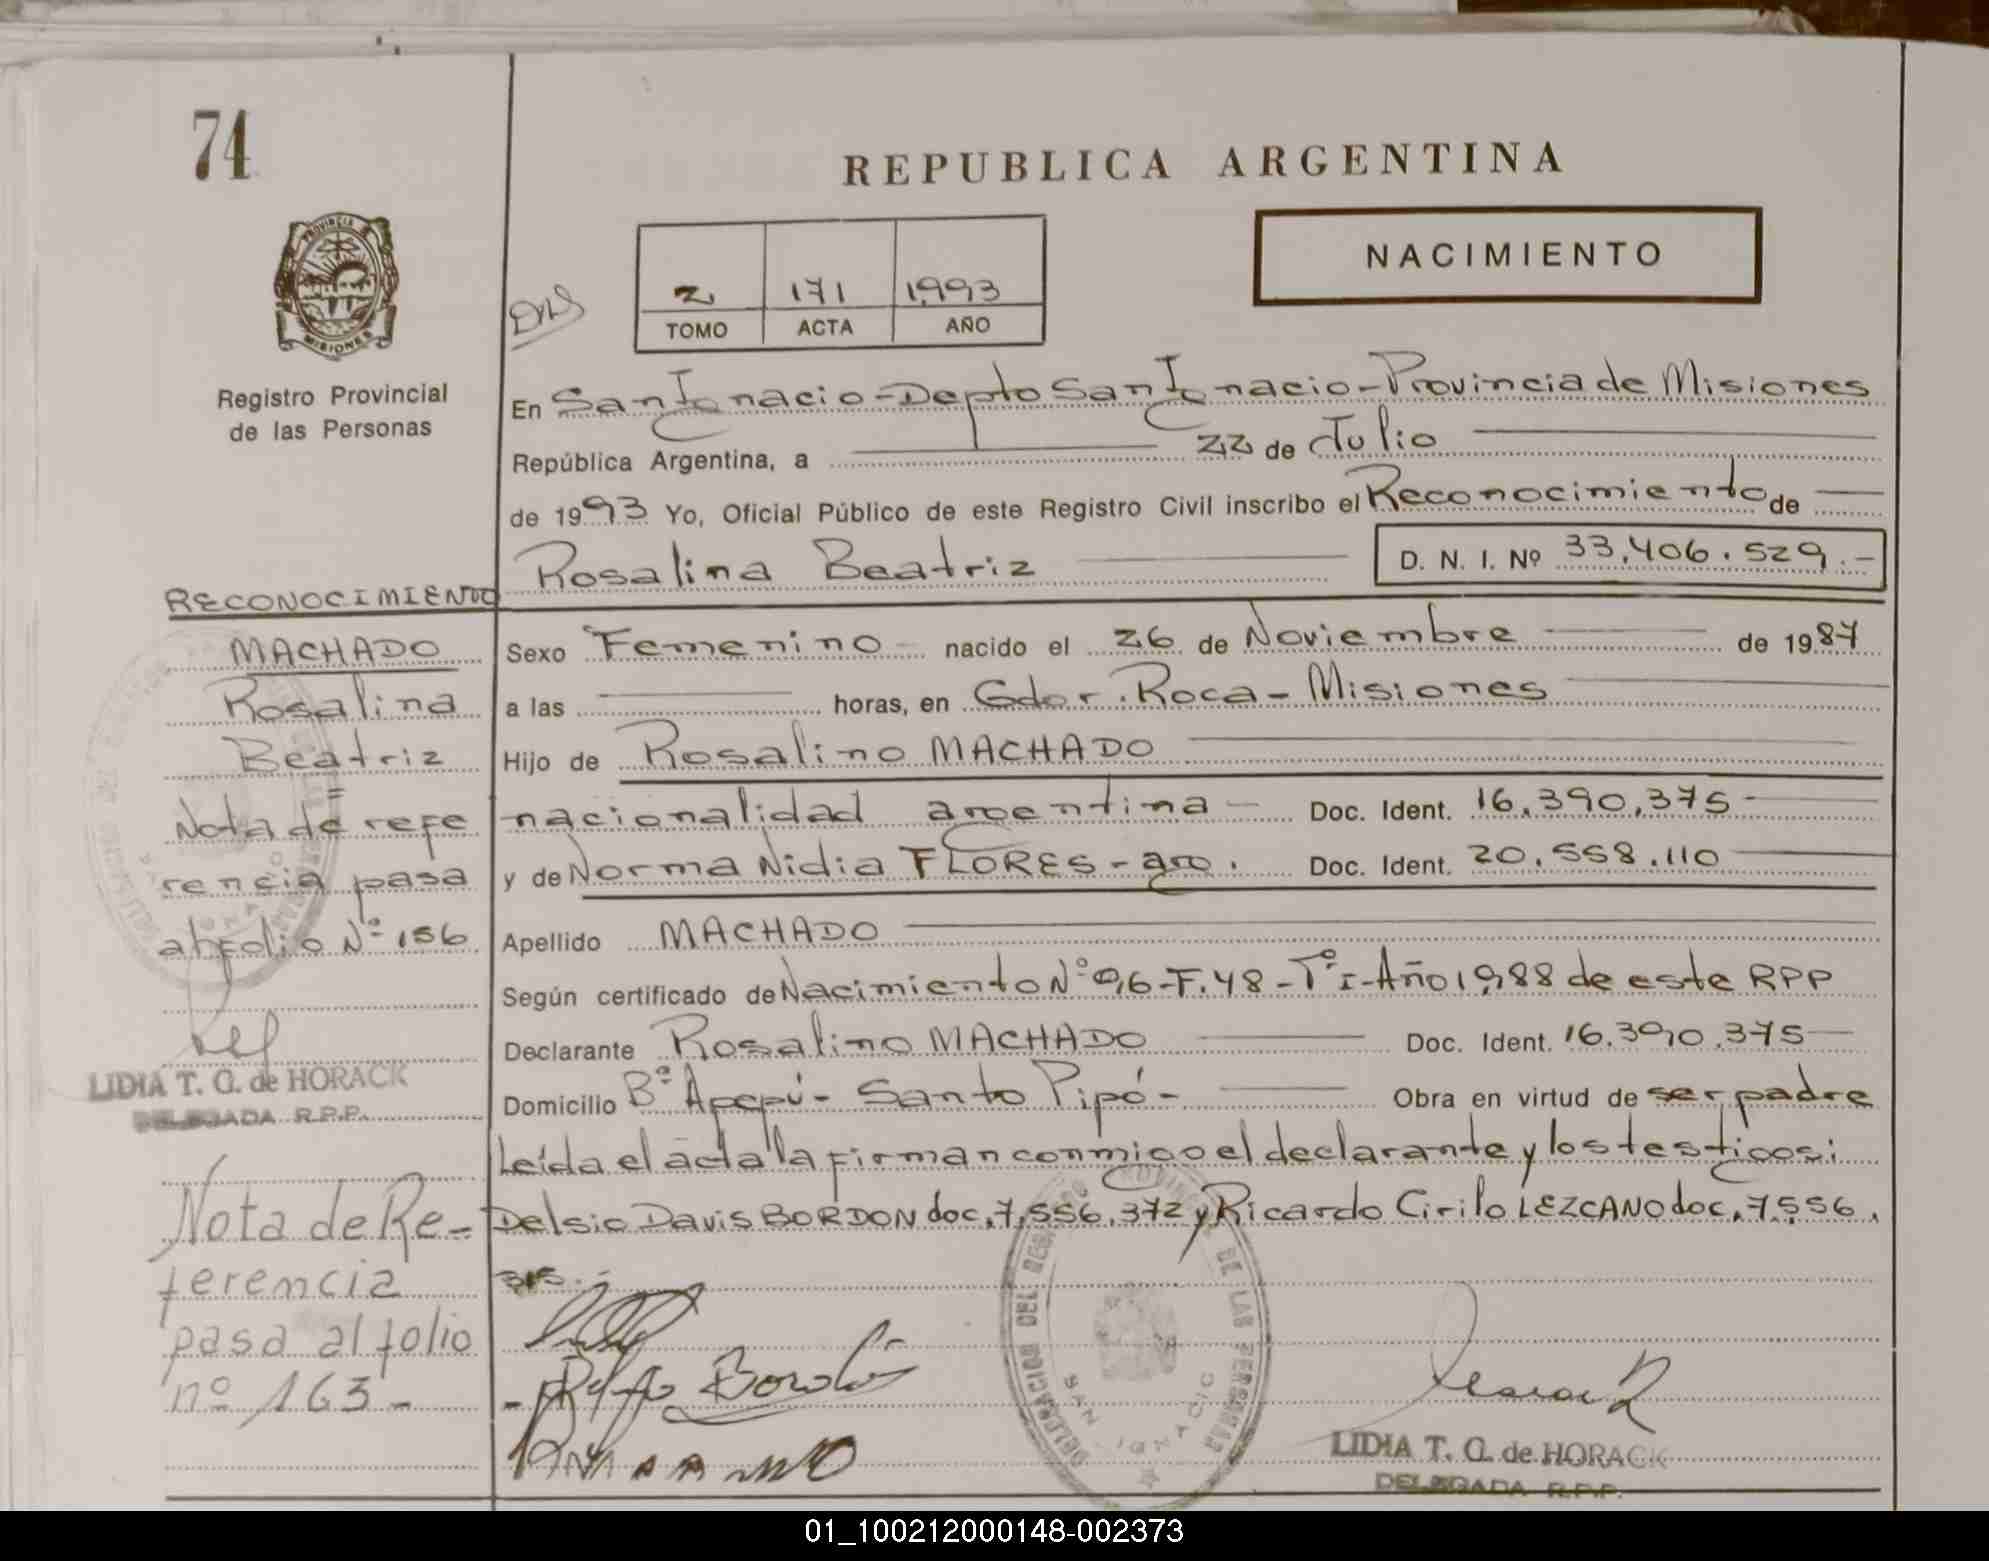 74
REPUBLICA ARGENTINA
NACIMIENTO
2 171 1993
TOMO ACTA AÑO
PROVINCIA DE MISIONES
Registro Provincial
de las Personas
En San Ignacio - Depto San Ignacio - Provincia de Misiones
República Argentina, a 22 de Julio
de 1993 Yo, Oficial Público de este Registro Civil inscribo el Reconocimiento de
Rosalina Beatriz D. N. I. Nº 33.406.529.-
RECONOCIMIENTO
MACHADO
Rosalina
Beatriz
Nota de refe
rencia pasa
al folio Nº 156
LIDIA T. O. de HORACK
DELEGADA R.P.P.
Nota de Re-
ferencia
pasa al folio
nº 163-
Sexo Femenino nacido el 26 de Noviembre de 1987
a las horas, en Gdor. Roca - Misiones
Hijo de Rosalino MACHADO
nacionalidad argentina - Doc. Ident. 16.390.375
y de Norma Nidia FLORES - arg. Doc. Ident. 20.558.110
Apellido MACHADO
Según certificado de Nacimiento Nº 96-F.48-Tº I-Año 1988 de este RPP
Declarante Rosalino MACHADO Doc. Ident. 16.390.375
Domicilio Bº Apepú - Santo Pipó - Obra en virtud de ser padre
Leída el acta la firman conmigo el declarante y los testigos:
Delsio Davis BORDON doc. 7.556.372 y Ricardo Cirilo LEZCANO doc. 7.556.
315.-
DELEGACION DEL REGISTRO PROVINCIAL DE LAS PERSONAS
SAN IGNACIO
LIDIA T. O. de HORACK
DELEGADA R.P.P.
01_100212000148-002373